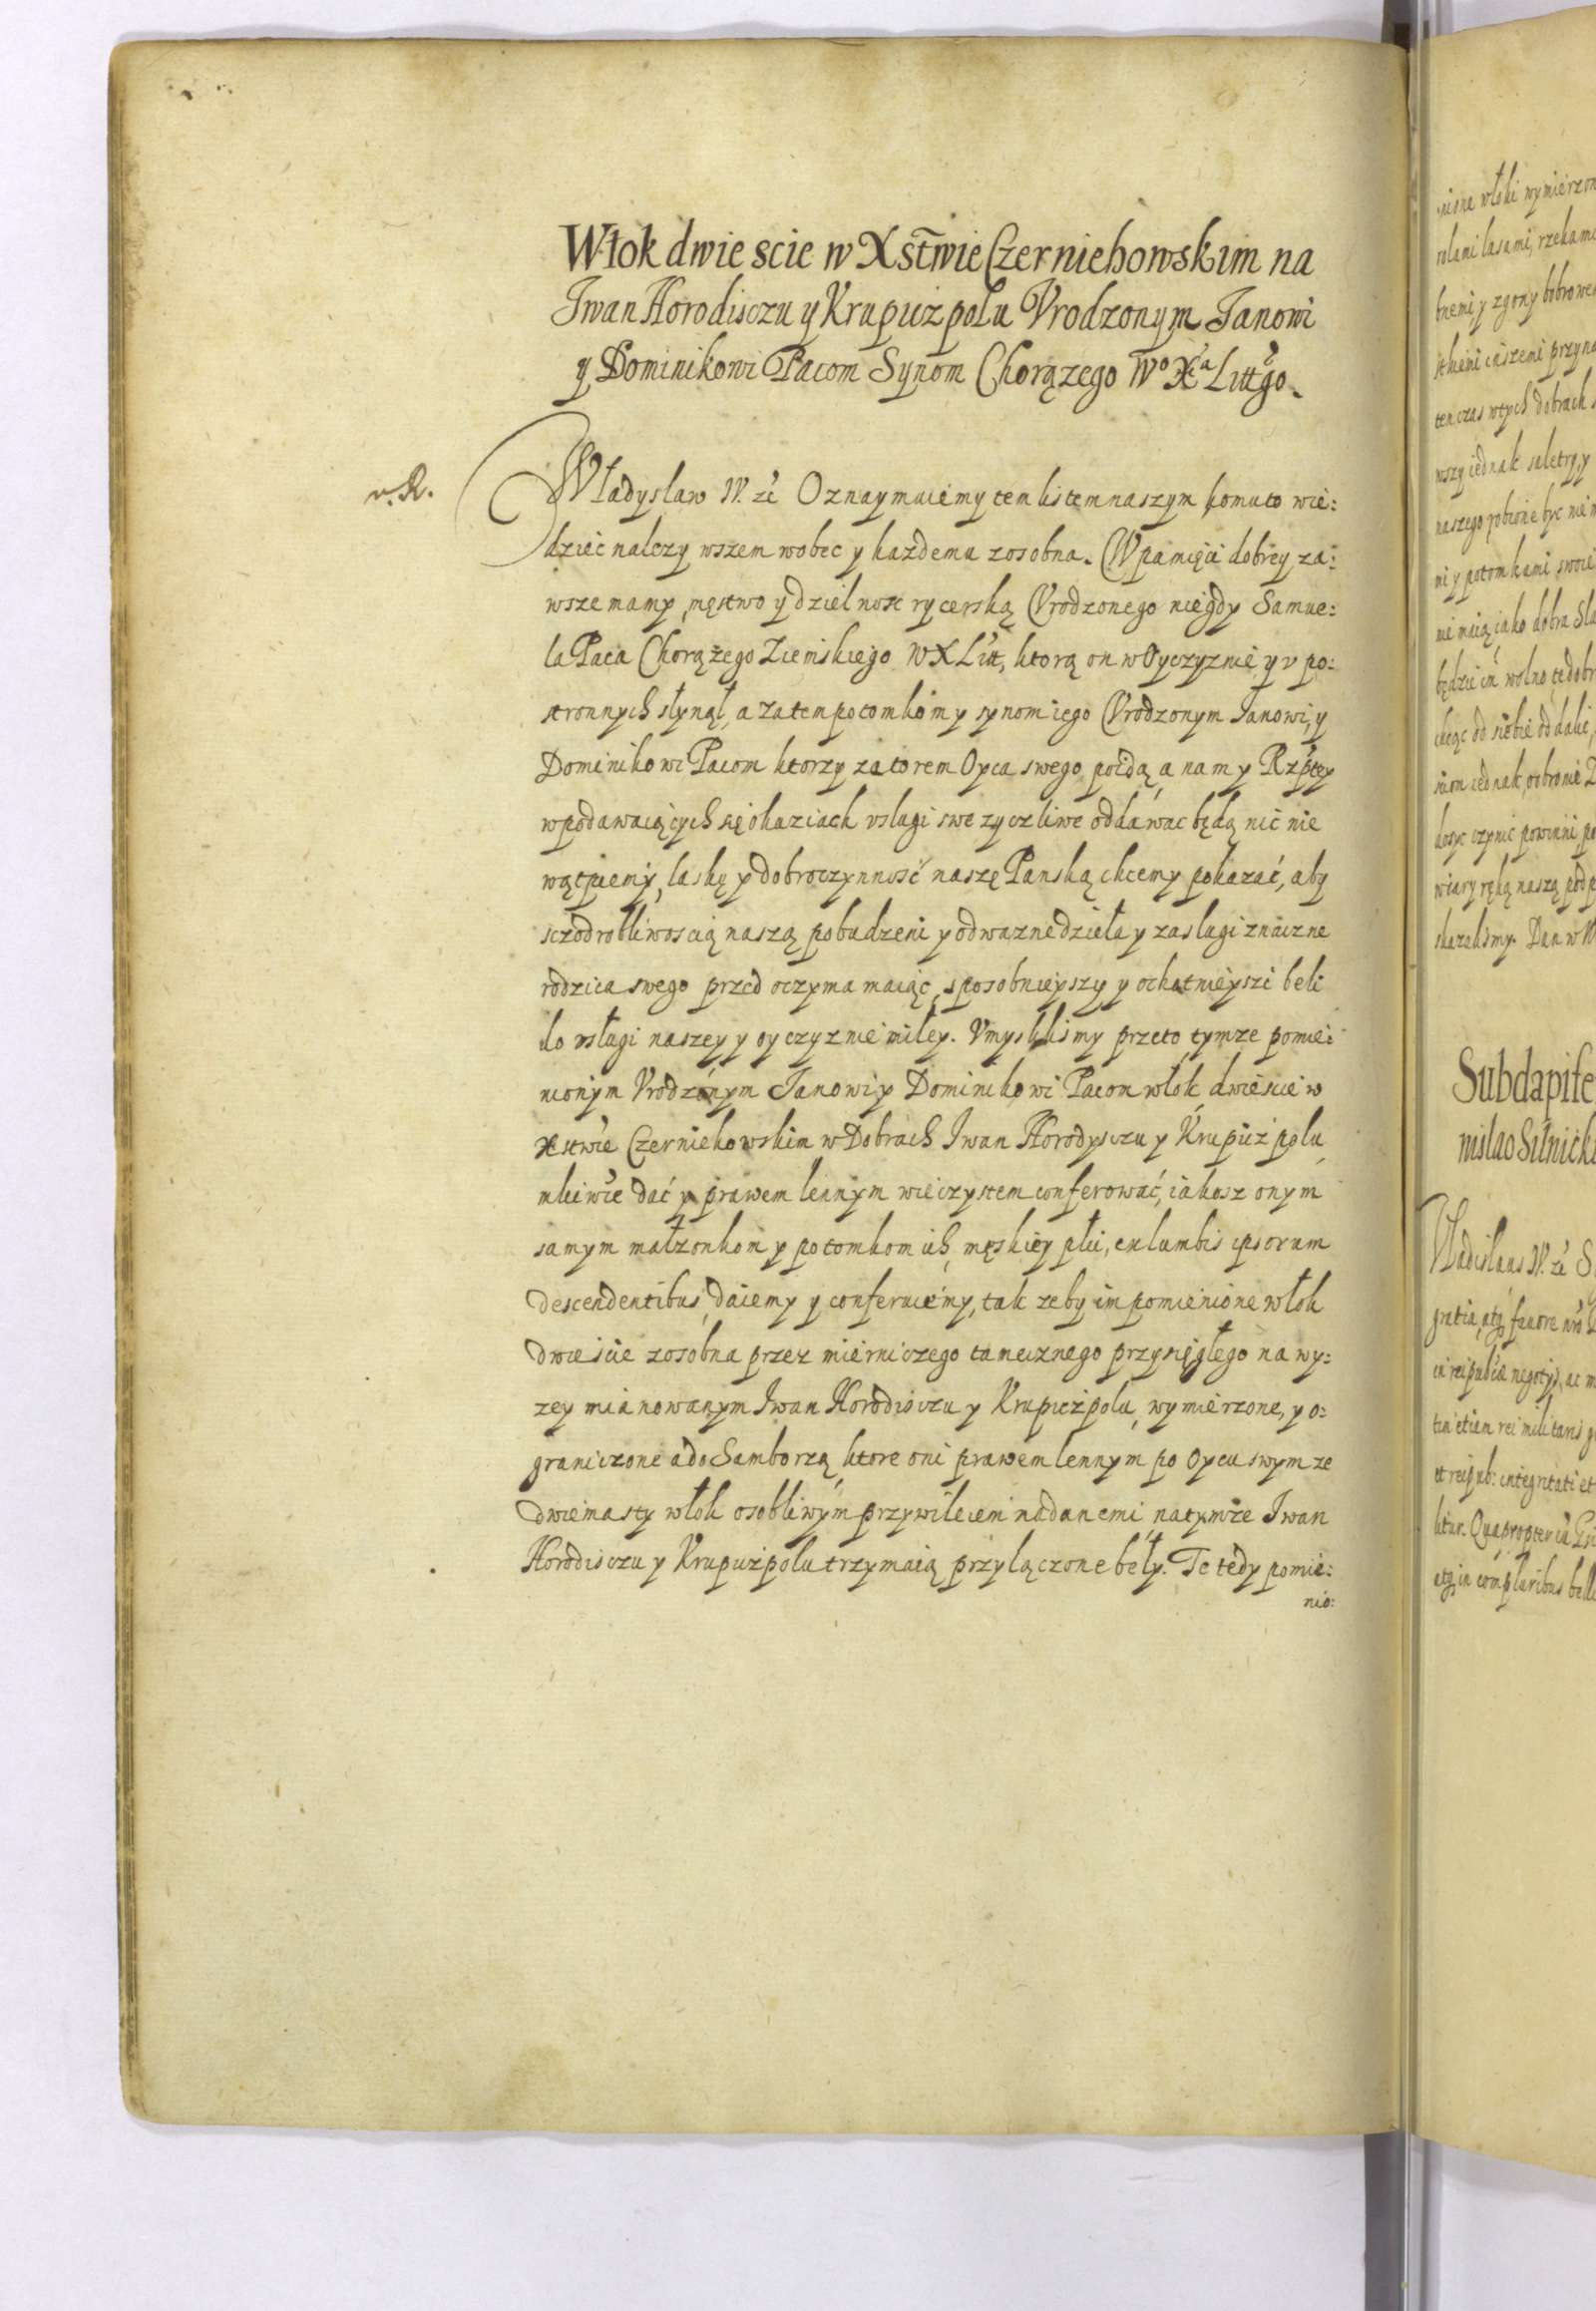 Włok dwie scie w Xstwie Czerniehowskim na
Iwan Horodisczu y Krupiczpolu Vrodzonym Janowi
y Dominikowi Pacom Synom Chorążego Wo Xa Littgo.
v. R.
Władysław IV. zć Oznaymuiemy tem listem naszym komu to wie:
dzieć nalezy wszem wobec y kazdemu zosobna. W pamięci dobrey za:
wsze mamy, męstwo y dzielnosc rycerską Vrodzonego niegdy Samue:
la Paca Chorążego Ziemskiego WXLitt, ktorą on w Oyczyznie y v po:
stronnych słynął, a zatem potomkom y synom iego Vrodzonym Janowi, y
Dominikowi Pacom ktorzy zatorem Oyca swego poidą, a nam y Rzptey
w podawaiących się okaziach vslugi swe zyczliwe oddawac będą nic nie
wątpiemy, laskę y dobroczynność naszę Panską chcemy pokazać, aby
sczodrobliwoscią naszą pobudzeni y odwazne dzieła y zaslugi znaczne
rodzica swego przed oczyma maiąc, sposobnieyszy y ochotnieyszi beli
do vslugi naszey y oyczyznie miley. Vmyslilismy przeto tymze pomie:
nionym Vrodzonym Janowi y Dominikowi Pacom włok dwiescie w
Xstwie Czerniehowskim w Dobrach Iwan Horodysczu y Krupicz polu
mlciwie dać y prawem lennym wieczystem conferować, iakosz onym
samym małzonkom y potomkom ich, męskiey płci, ex lumbis ipsorum
descendentibus, daiemy y conferuiemy, tak zeby im pomienione włok
dwiescie zosobna przez mierniczego tamecznego przysięgłego na wy:
zey mianowanym Iwan Horodisczu y Krupiczpolu, wymierzone, y o:
graniczone a do Samborzą ktore oni prawem lennym po Oycu swym ze
dwiemasty włok osobliwym przywileiem nadanemi na tymże Iwan
Horodisczu y Krupiczpolu trzymaią przyłączone beły. Te tedy pomie:
nio:
nione włoki wymierzon
rolami lasami, rzekami
tnemi y zgony bobrowe
ten czas w tych dobrach
wszy iednak saletry, y
naszego robione byc nie m
ni y potomkami swoie
mi maią iako dobra Sla
będzie im wolno te dobr
chcąc od siebie oddalić,
dosyc czynić powinni, po
wiary ręką naszą podp
skazalismy. Dan w W
Subdapife
mislao Silnicki
Vladislaus IV. zć S
gratia, atq favore nro
in reipublicæ negotys, ac m
tim etiam rei militaris
et reipub: integritati et
atq in compluribus bell